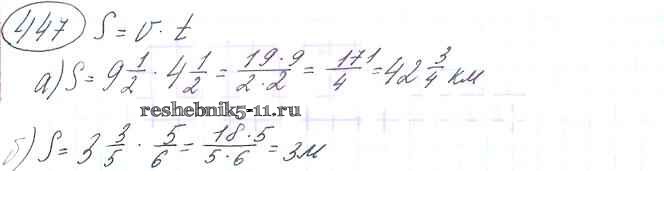 447 S = v · t
а) S = 9 1/2 · 4 1/2 = 19·9/2·2 = 171/4 = 42 3/4 км
reshebnik5-11.ru
б) S = 3 3/5 · 5/6 = 18·5/5·6 = 3м